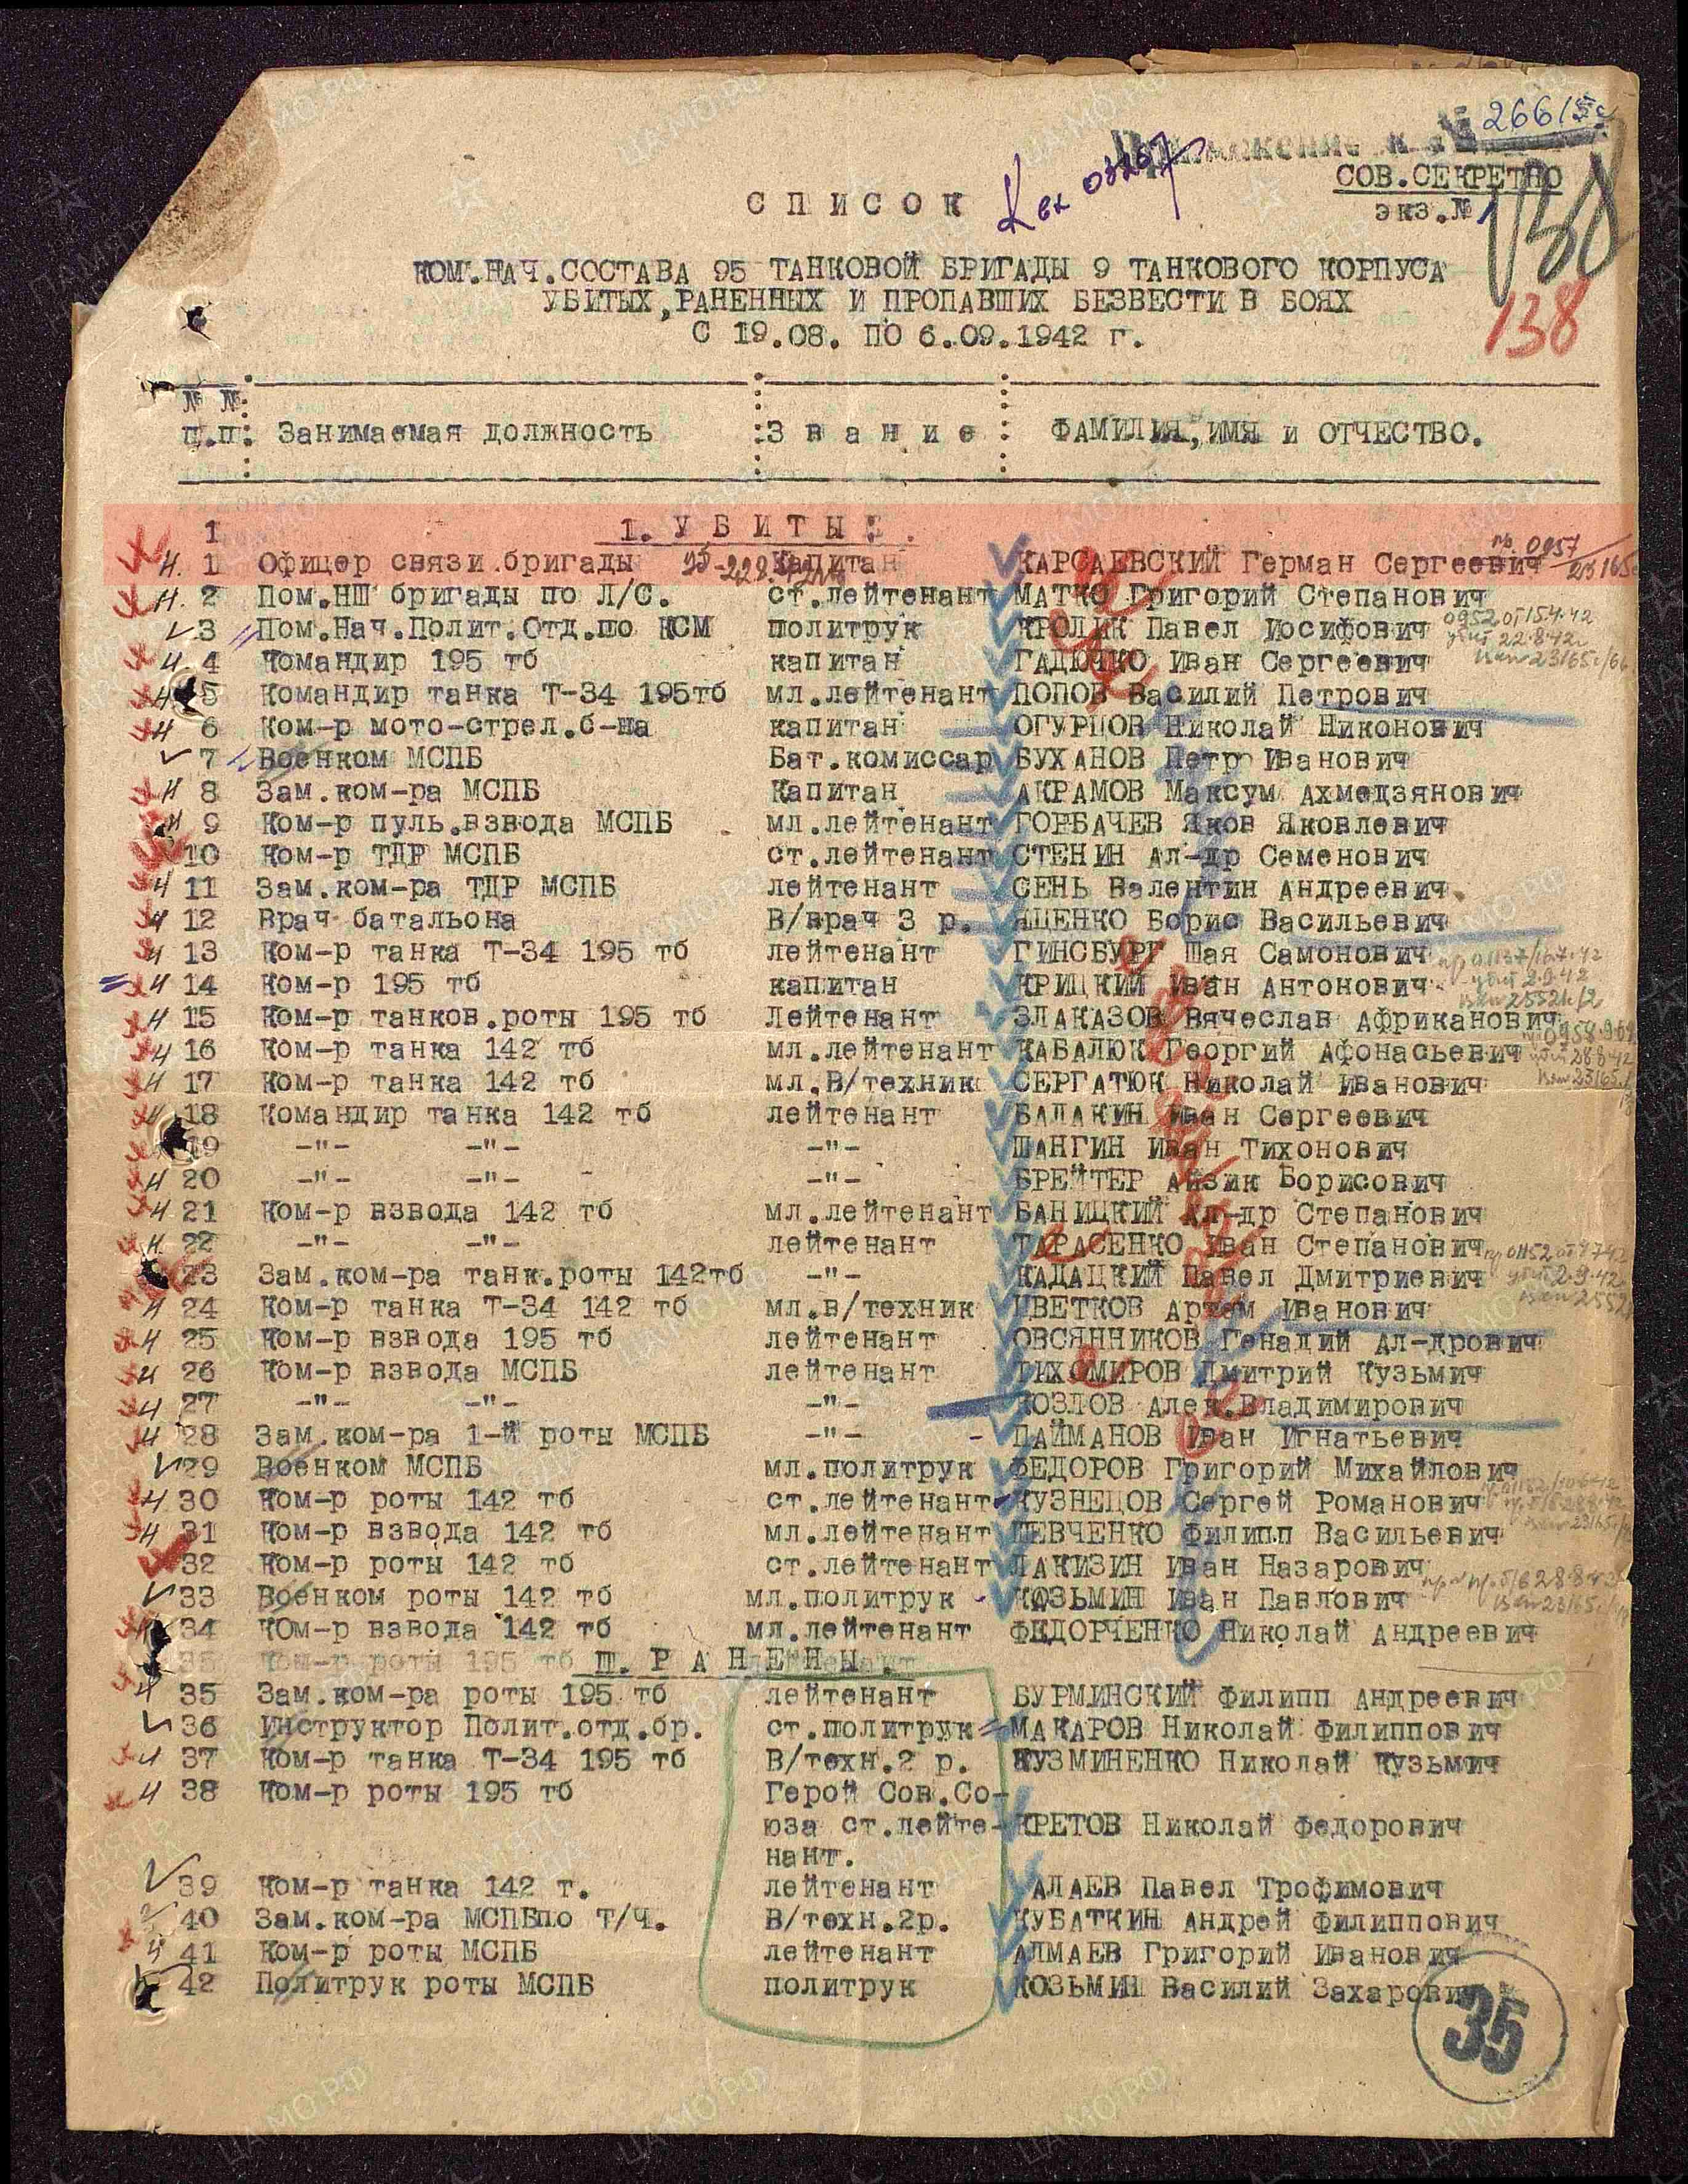 2661
СОВ.СЕКРЕТНО
экз.№ 1
СПИСОК
138
КОМ.НАЧ.СОСТАВА 95 ТАНКОВОЙ БРИГАДЫ 9 ТАНКОВОГО КОРПУСА
УБИТЫХ,РАНЕННЫХ И ПРОПАВШИХ БЕЗВЕСТИ В БОЯХ
С 19.08. ПО 6.09.1942 г.
138
№ №
п.п: Занимаемая должность :Звание: ФАМИЛИЯ,ИМЯ и ОТЧЕСТВО.
1 1. УБИТЫ:
1 Офицер связи бригады Капитан КАРСАЕВСКИЙ Герман Сергеевич
2 Пом.НШ бригады по Л/С. ст.лейтенант МАТКО Григорий Степанович
3 Пом.Нач.Полит.Отд.по КСМ политрук КРОЛИК Павел Иосифович
4 Командир 195 тб капитан ГАДЮЧКО Иван Сергеевич
5 Командир танка Т-34 195тб мл.лейтенант ПОПОВ Василий Петрович
6 Ком-р мото-стрел.б-на капитан ОГУРЦОВ Николай Никонович
7 Военком МСПБ Бат.комиссар БУХАНОВ Петр Иванович
8 Зам.ком-ра МСПБ Капитан АКРАМОВ Максум Ахмедзянович
9 Ком-р пуль.взвода МСПБ мл.лейтенант ГОРБАЧЕВ Яков Яковлевич
10 Ком-р ТДР МСПБ ст.лейтенант СТЕНИН Ал-др Семенович
11 Зам.ком-ра ТДР МСПБ лейтенант СЕНЬ Валентин Андреевич.
12 Врач батальона В/врач 3 р. ЯЩЕНКО Борис Васильевич
13 Ком-р танка Т-34 195 тб лейтенант ГИНСБУРГ Шая Самонович
14 Ком-р 195 тб капитан КРИЦКИЙ Иван Антонович
15 Ком-р танков.роты 195 тб Лейтенант ЗЛАКАЗОВ Вячеслав Африканович
16 Ком-р танка 142 тб мл.лейтенант КАБАЛЮК Георгий Афонасьевич
17 Ком-р танка 142 тб мл.В/техник СЕРГАТЮК Николай Иванович
18 Командир танка 142 тб лейтенант БАЛАКИН Иван Сергеевич
19 -"- -"- -"- ШАНГИН Иван Тихонович
20 -"- -"- - -"- БРЕЙТЕР Айзик Борисович
21 Ком-р взвода 142 тб мл.лейтенант БАНИЦКИЙ Ал-др Степанович
22 -"- -"- лейтенант ТАРАСЕНКО Иван Степанович
23 Зам.ком-ра танк.роты 142тб -"- КАДАЦКИЙ Павел Дмитриевич
24 Ком-р танка Т-34 142 тб мл.в/техник ЦВЕТКОВ Артем Иванович
25 Ком-р взвода 195 тб лейтенант ОВСЯННИКОВ Генадий Ал-дрович
26 Ком-р взвода МСПБ лейтенант ТИХОМИРОВ Дмитрий Кузьмич
27 -"- -"- -"- КОЗЛОВ Алек.Владимирович
28 Зам.ком-ра 1-й роты МСПБ -"- - ПАЙМАНОВ Иван Игнатьевич
29 Военком МСПБ мл.политрук ФЕДОРОВ Григорий Михайлович
30 Ком-р роты 142 тб ст.лейтенант КУЗНЕЦОВ Сергей Романович
31 Ком-р взвода 142 тб мл.лейтенант ШЕВЧЕНКО Филипп Васильевич
32 Ком-р роты 142 тб ст.лейтенант ЛАКИЗИН Иван Назарович
33 Военком роты 142 тб мл.политрук КОЗЬМИН Иван Павлович
34 КОм-р взвода 142 тб мл.лейтенант ФЕДОРЧЕНКО Николай Андреевич
35 Ком-р роты 195 тб П. РАНЕНЫ.
35 Зам.ком-ра роты 195 тб лейтенант БУРМИНСКИЙ Филипп Андреевич
36 Инструктор Полит.отд.бр. ст.политрук МАКАРОВ Николай Филиппович
37 Ком-р танка Т-34 195 тб В/техн.2 р. КУЗМИНЕНКО Николай Кузьмич
38 Ком-р роты 195 тб Герой Сов.Со-
юза ст.лейте- КРЕТОВ Николай Федорович
нант.
39 Ком-р танка 142 т. лейтенант АЛАЕВ Павел Трофимович
40 Зам.ком-ра МСПБпо Т/Ч. В/техн.2р. КУБАТКИН Андрей Филиппович
41 Ком-р роты МСПБ лейтенант АЛМАЕВ Григорий Иванович
42 Политрук роты МСПБ политрук КОЗЬМИН Василий Захарович
35